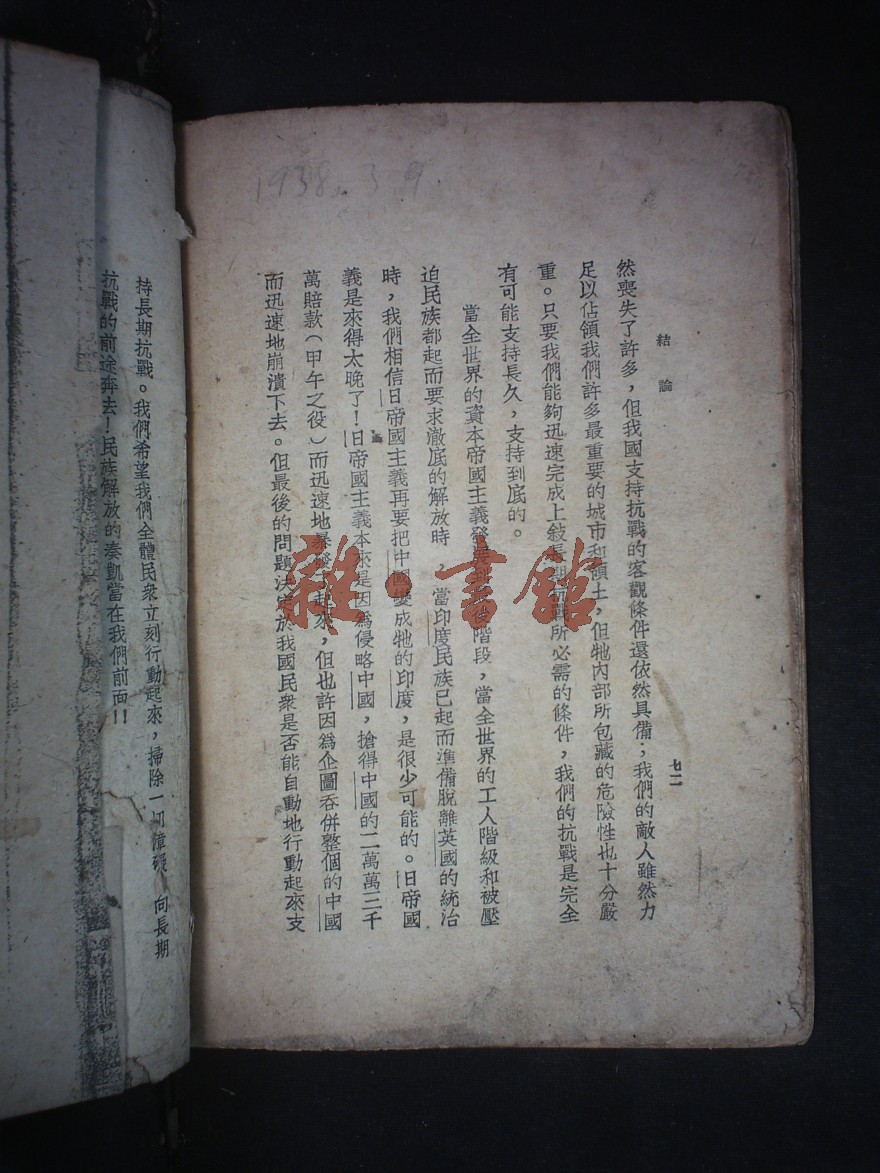 1938.3 9.
結論
七二
然喪失了許多，但我國支持抗戰的客觀條件還依然具備；我們的敵人雖然力
足以佔領我們許多最重要的城市和領土，但牠內部所包藏的危險性也十分嚴
重。只要我們能夠迅速完成上敍長期抗戰所必需的條件，我們的抗戰是完全
有可能支持長久，支持到底的。
當全世界的資本帝國主義發展到最後階段，當全世界的工人階級和被壓
迫民族都起而要求澈底的解放時，當印度民族已起而準備脫離英國的統治
時，我們相信日帝國主義再要把中國變成牠的印度，是很少可能的。日帝國
義是來得太晚了！日帝國主義本來是因爲侵略中國，搶得中國的二萬萬三千
萬賠款（甲午之役）而迅速地暴發起來，但也許因爲企圖吞併整個的中國
而迅速地崩潰下去。但最後的問題決定於我國民衆是否能自動地行動起來支
持長期抗戰。我們希望我們全體民衆立刻行動起來，掃除一切障礙 向長期
抗戰的前途奔去！民族解放的凑凱當在我們前面！！
雜·書館